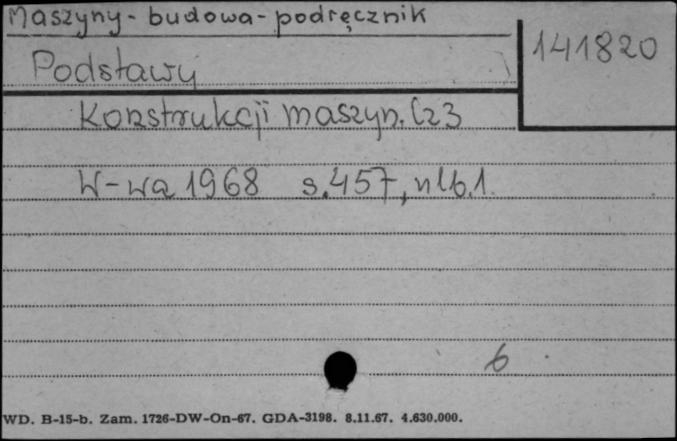 Maszyny - budowa - podręcznik
141820
Podstawy
Konstrukcji maszyn. Cz 3
W-wa 1968 s.457, nlb.1.
6
WD. B-15-b. Zam. 1726-DW-On-67. GDA-3198. 8.11.67. 4.630.000.